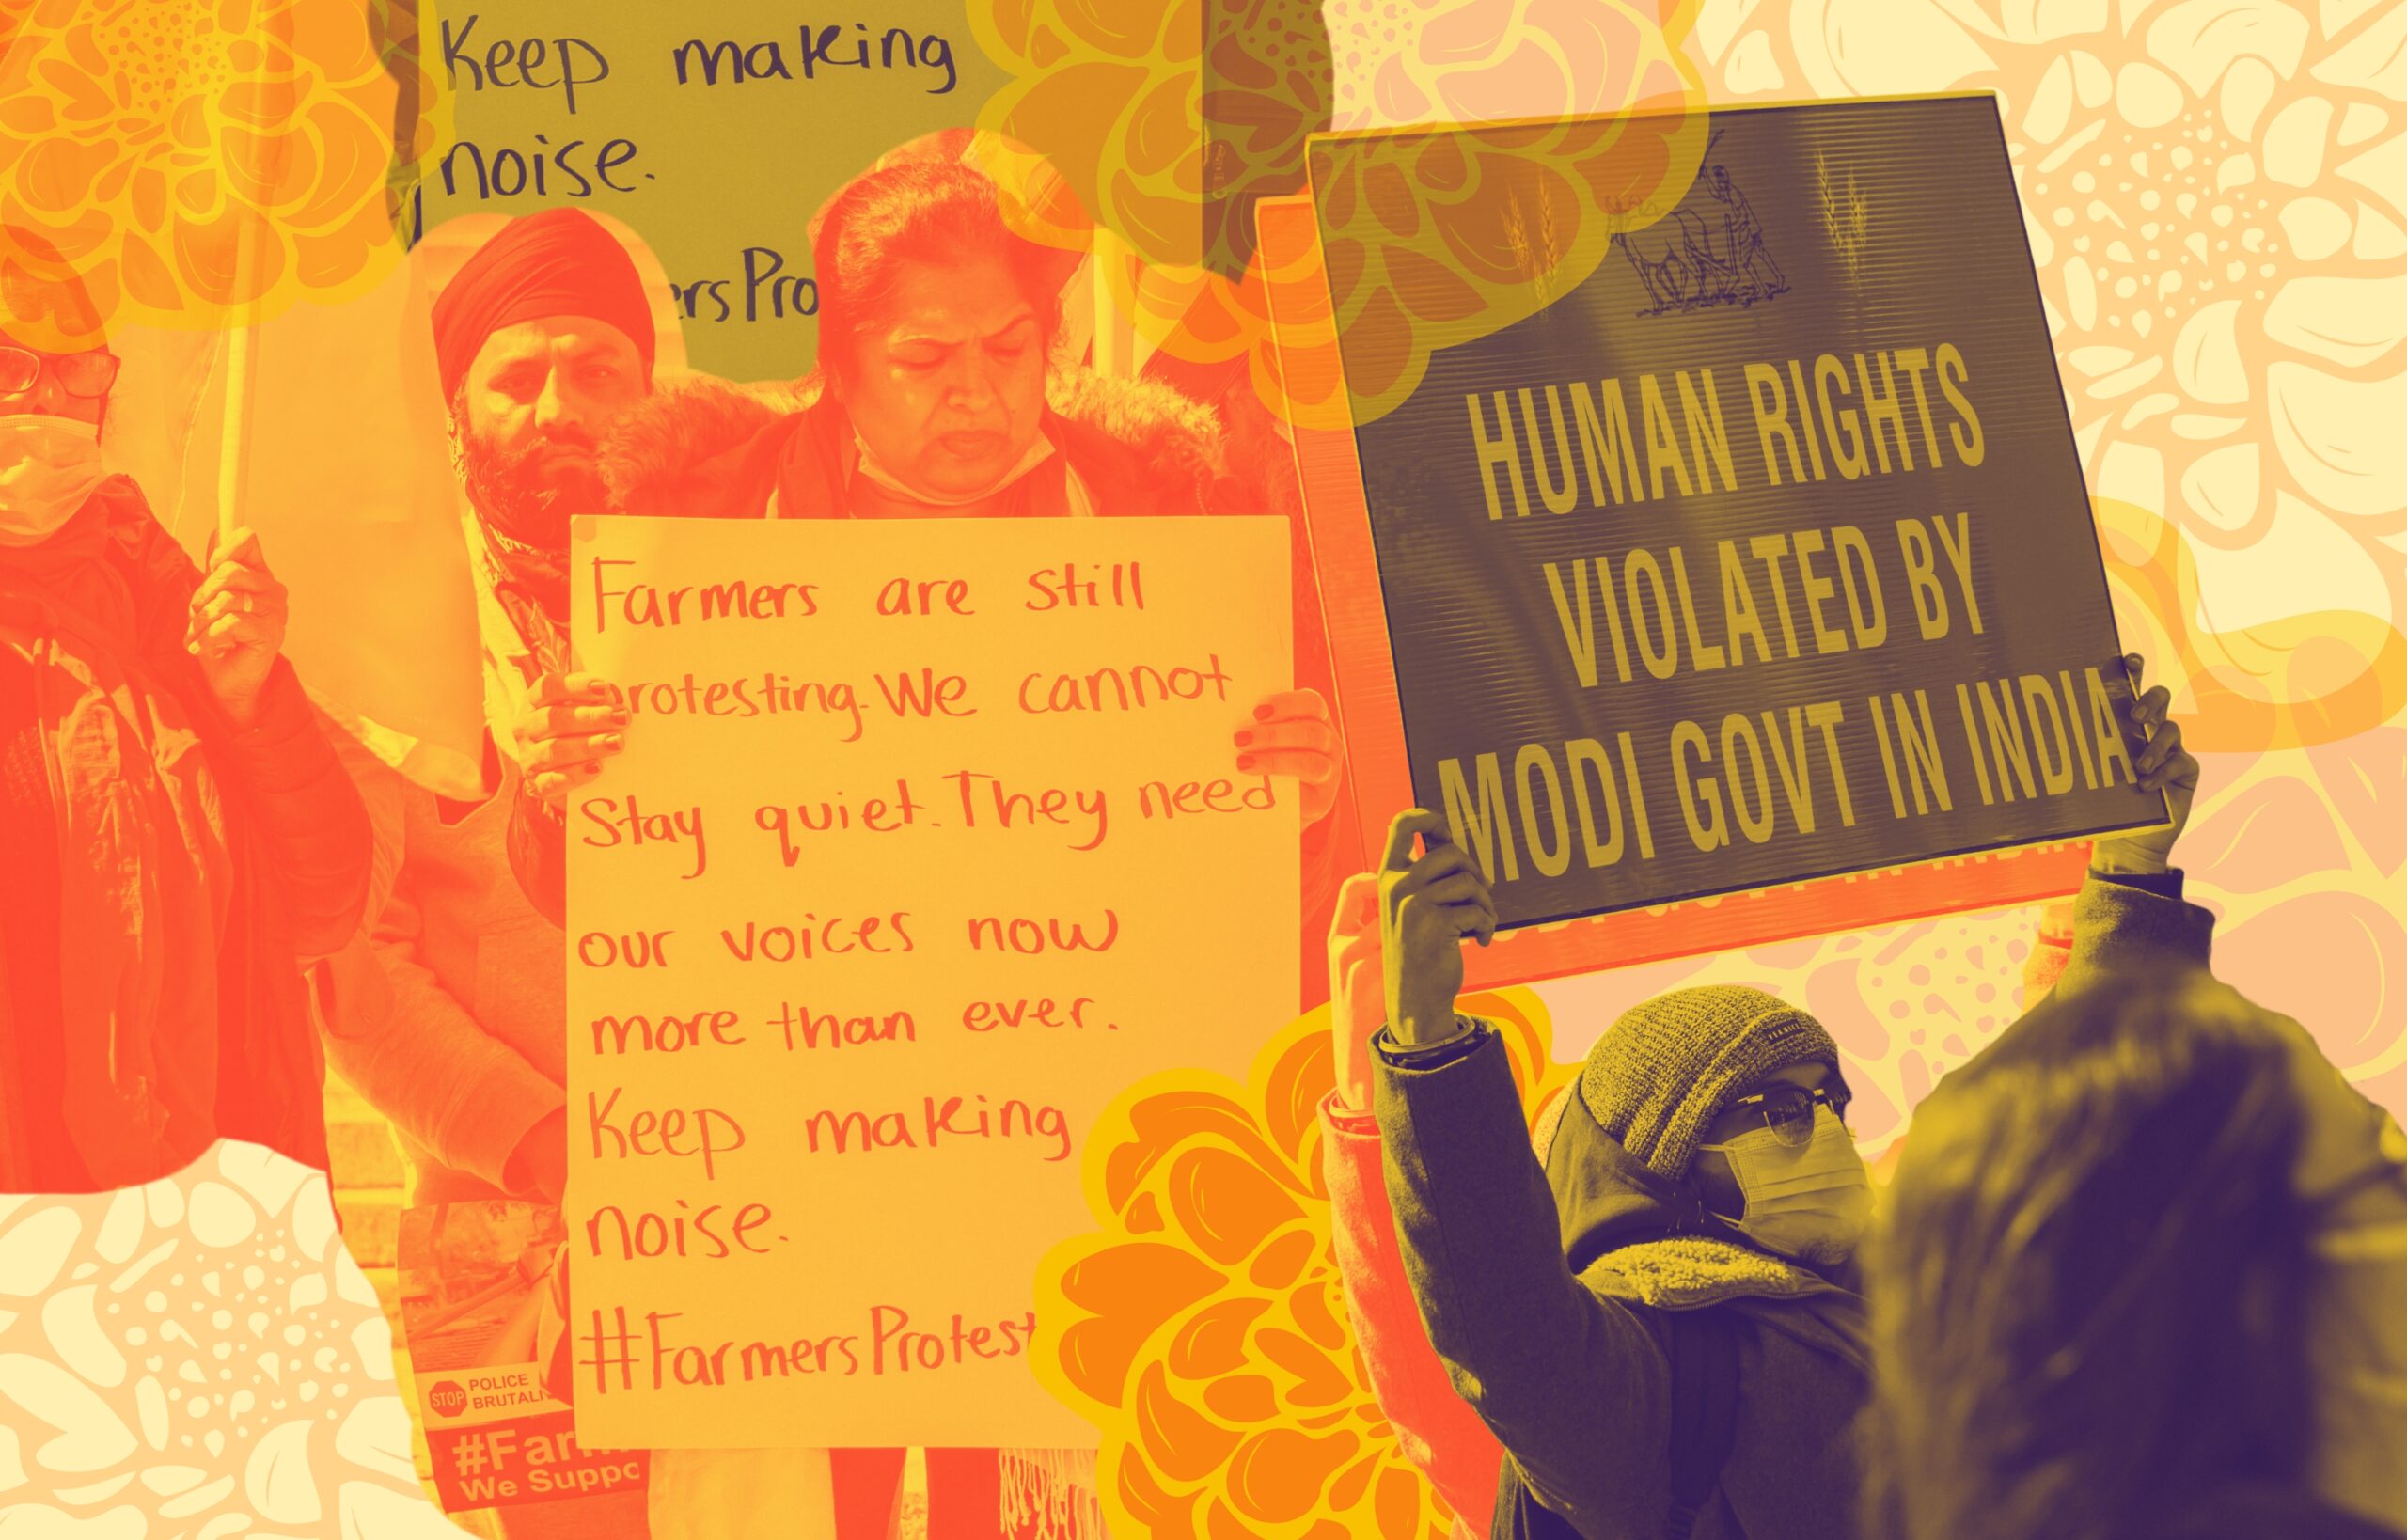 Keep making
noise.
ersPro
Farmers are still
protesting. We cannot
Stay quiet. They need
our voices now
more than ever.
Keep making
noise.
#FarmersProtest
HUMAN RIGHTS
VIOLATED BY
MODI GOVT IN INDIA
STOP
POLICE
BRUTALI
#Far
We Suppo